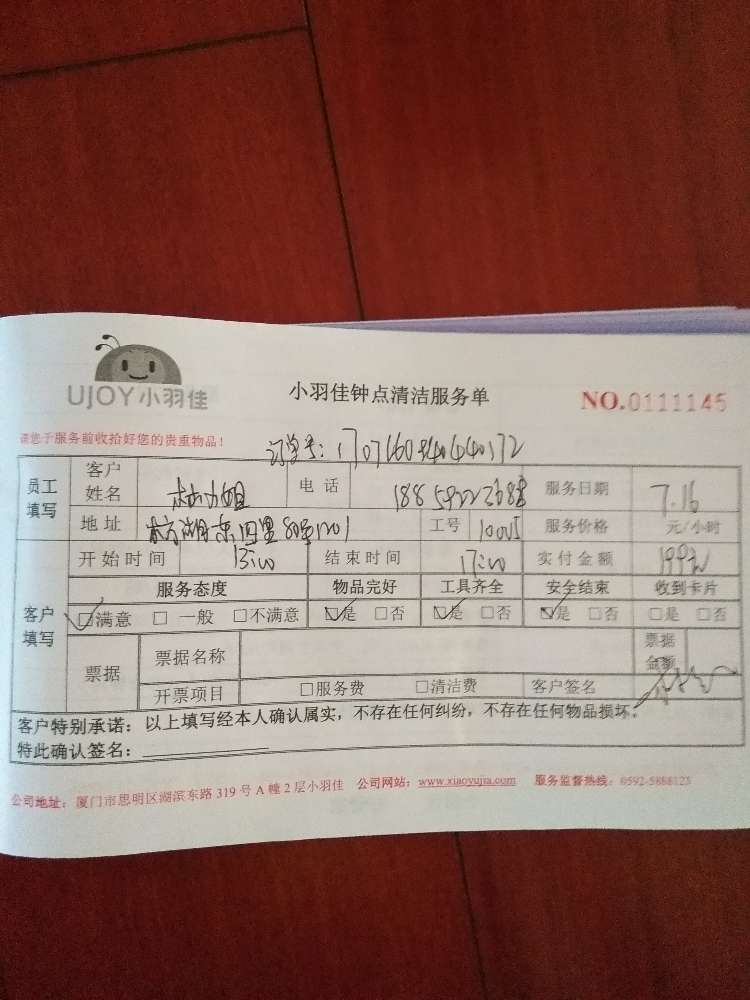 UJOY小羽佳
小羽佳钟点清洁服务单
NO.0111145
请您于服务前收拾好您的贵重物品！
订单号：
员工填写 客户姓名 林小姐 电话 服务日期 7.16
地址 东四里 1201 工号 服务价格 元/小时
开始时间 13:00 结束时间 17:00 实付金额 199元
客户填写 服务态度 物品完好 工具齐全 安全结束 收到卡片
☑满意 □一般 □不满意 ☑是 □否 ☑是 □否 ☑是 □否 □是 □否
票据 票据名称 票据金额
开票项目 □服务费 □清洁费 客户签名
客户特别承诺：以上填写经本人确认属实，不存在任何纠纷，不存在任何物品损坏。
特此确认签名：
公司地址：厦门市思明区湖滨东路 319 号 A 幢 2 层小羽佳 公司网站：www.xiaoyujia.com 服务监督热线：0592-5888123